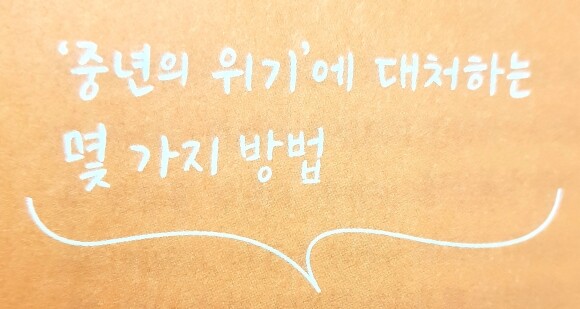 ‘중년의 위기’에 대처하는
몇 가지 방법